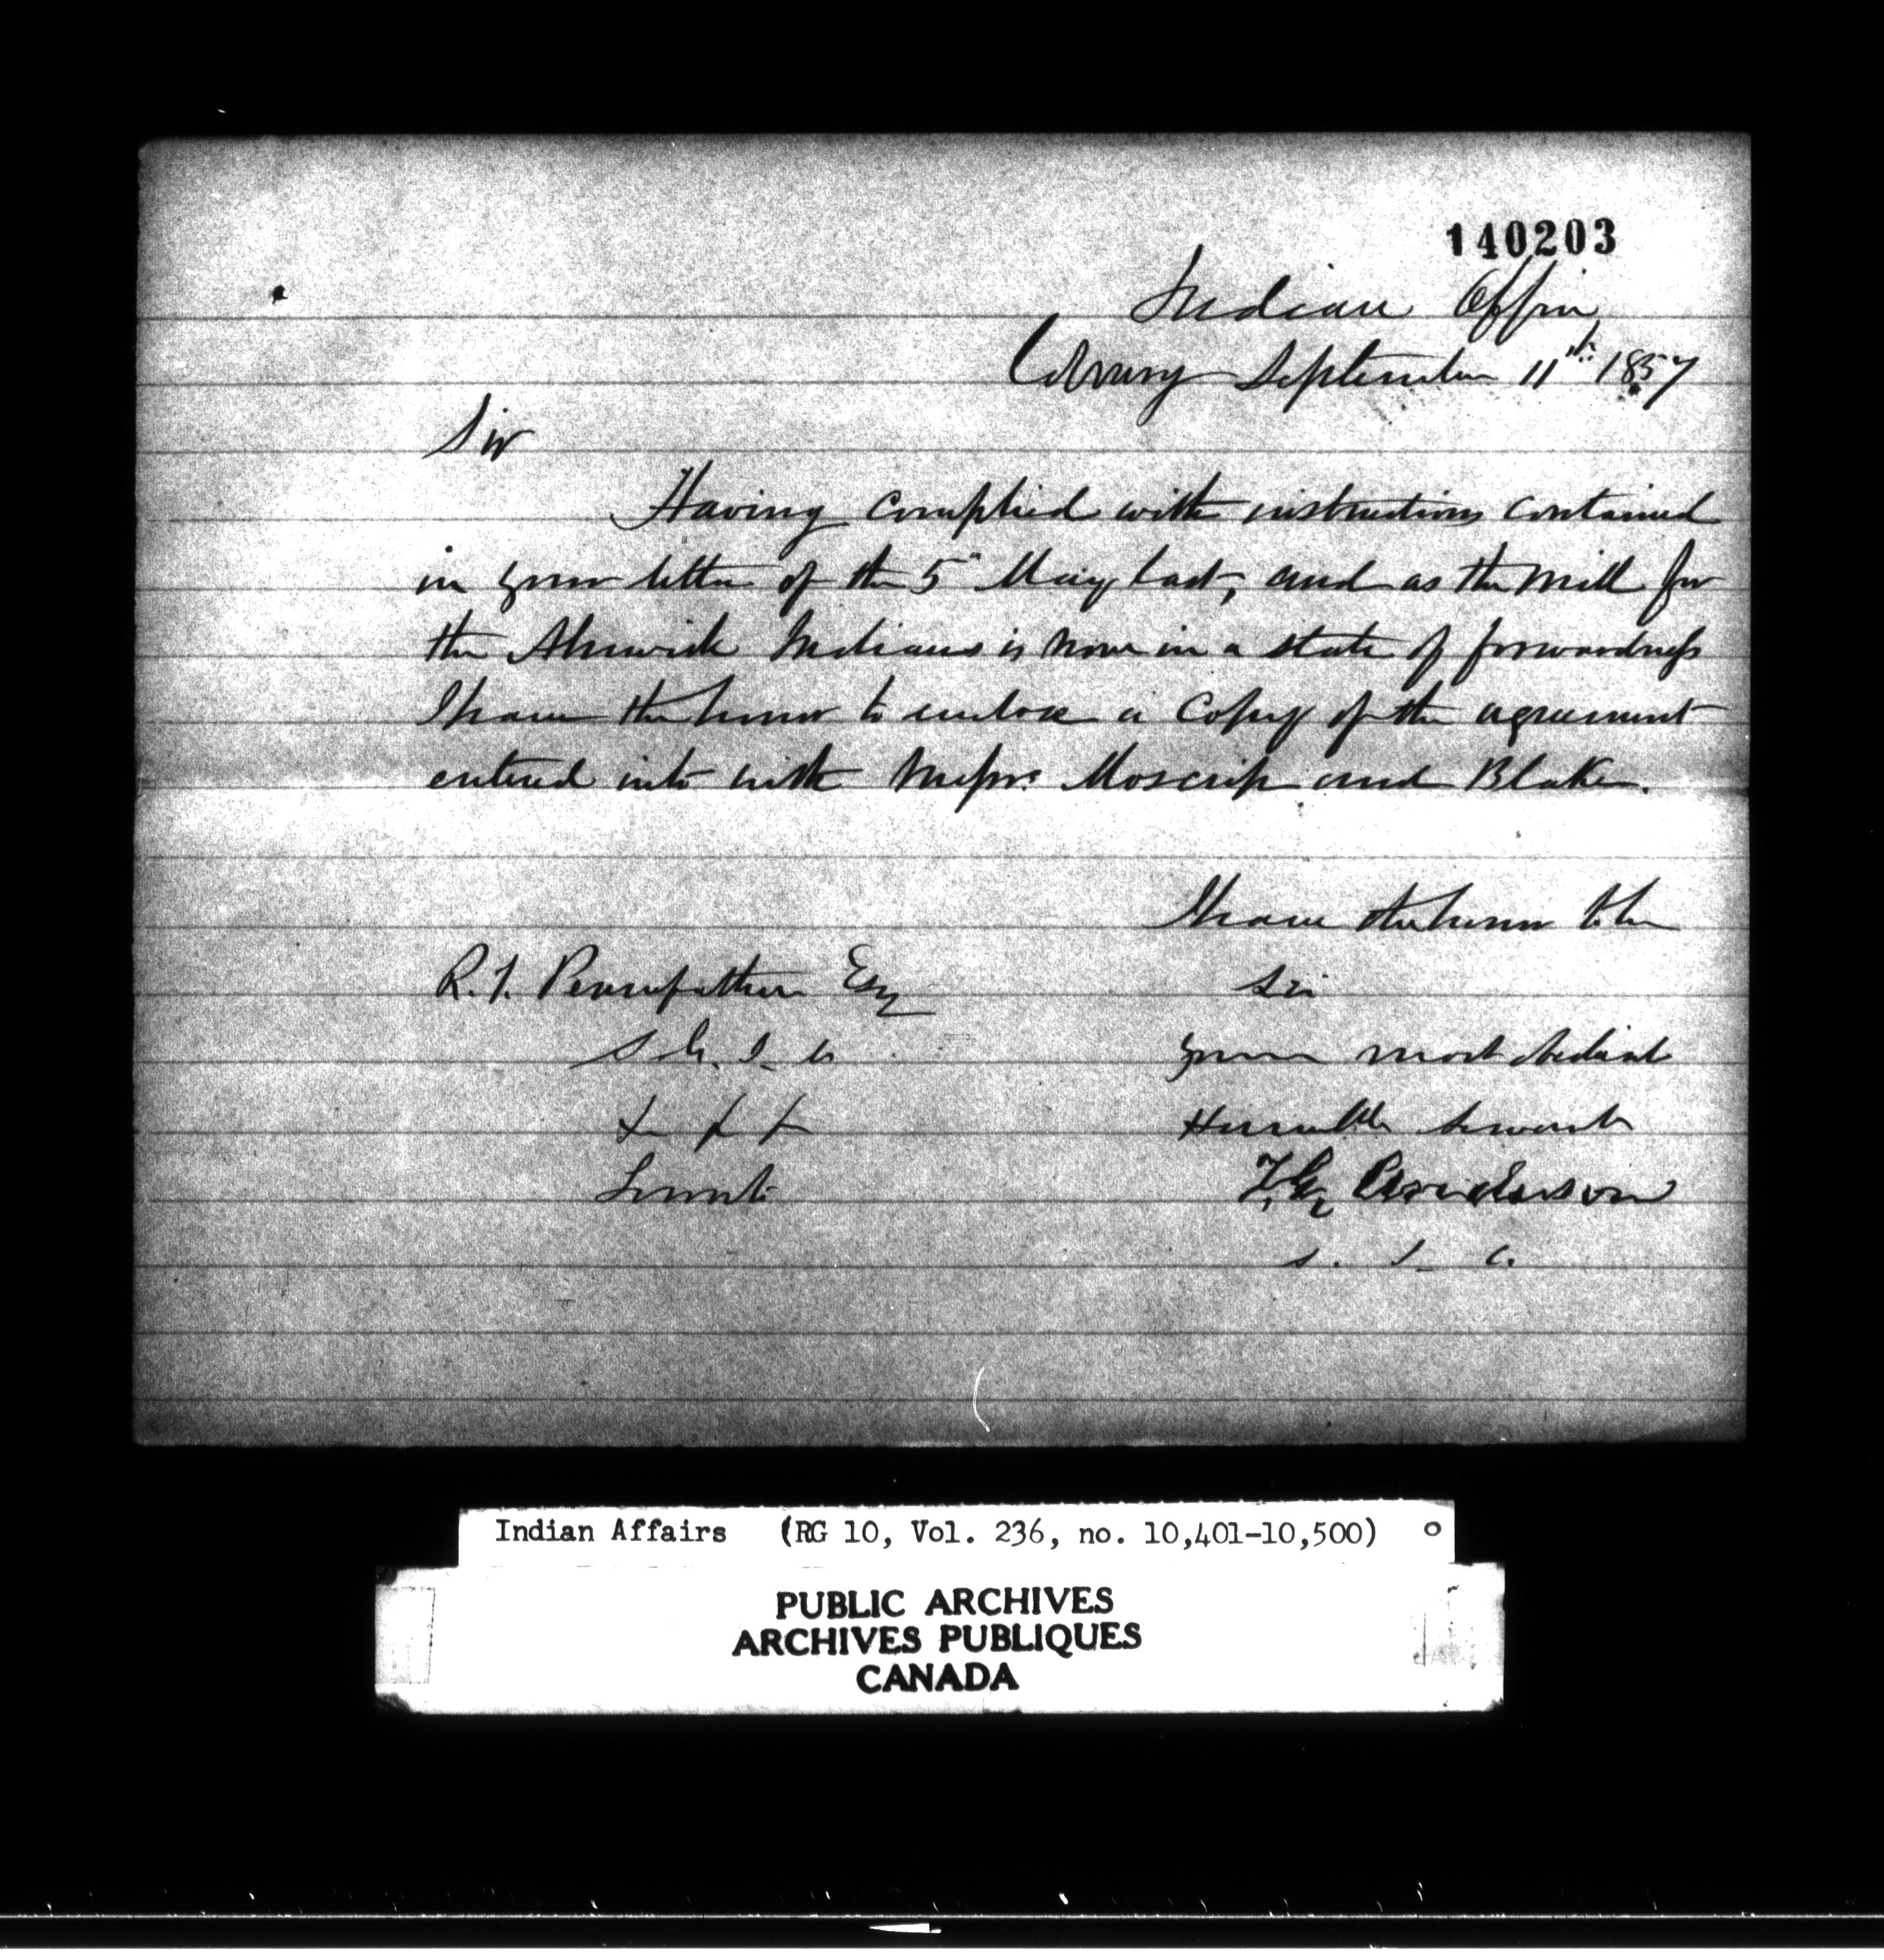 140203
Indian Office
Cobourg September 11th 1857
Sir
Having complied with instructions contained
in your letter of the 5th May last, and as the Mill for
the Alnwick Indians is now in a state of forwardness
I have the honor to enclose a Copy of the agreement
entered into with Messrs. Moscrip and Blake.
I have the honor to be
R.T. Pennefather Esq
Sir
S. G. I. A.
your most obedient
& & &
Humble Servant
Toronto
T.G. Anderson
S. I. A.
Indian Affairs (RG 10, Vol. 236, no. 10,401-10,500)
PUBLIC ARCHIVES
ARCHIVES PUBLIQUES
CANADA